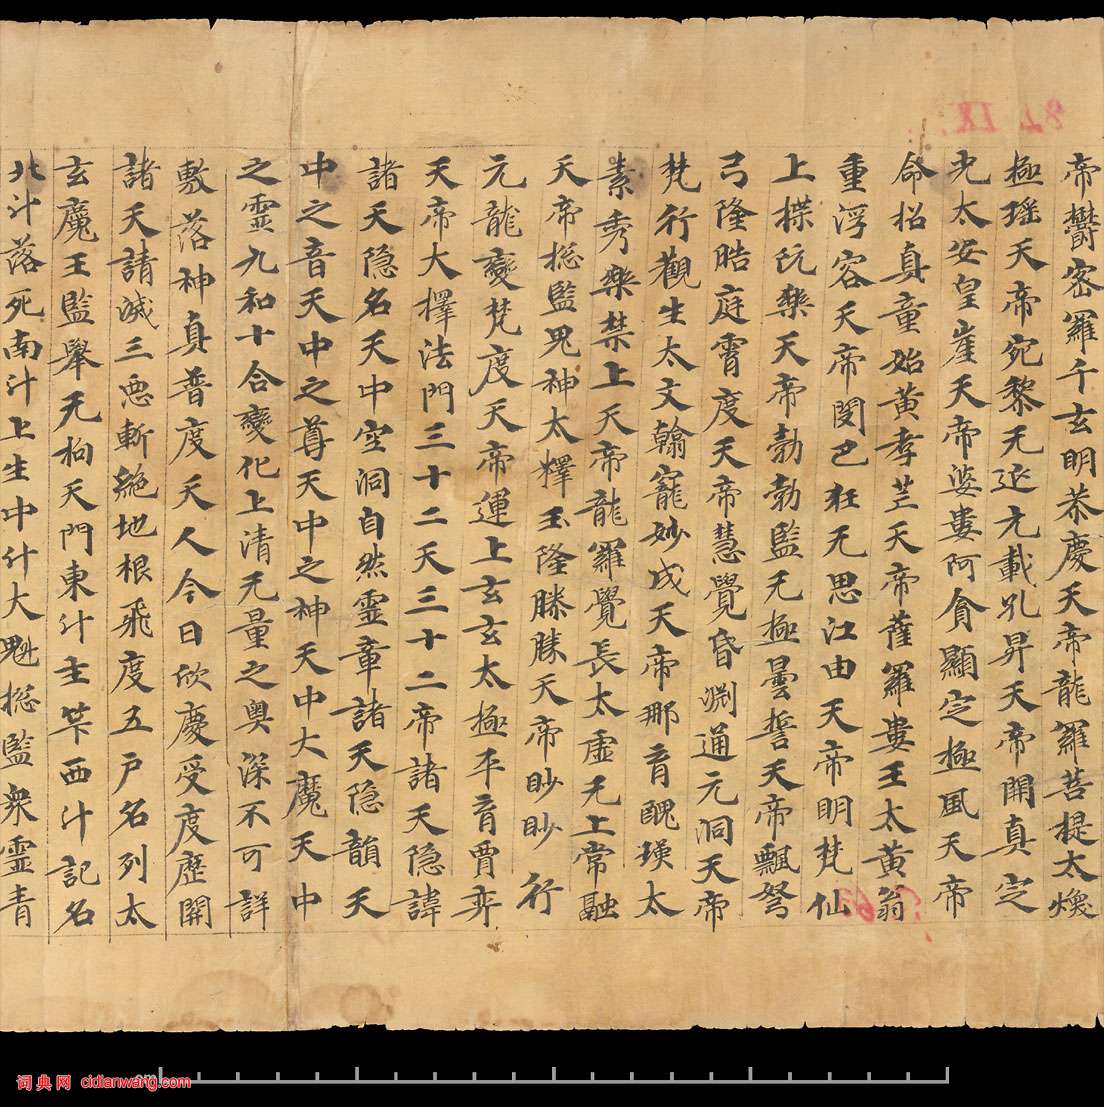 帝欝密羅千玄明恭慶天帝龍羅菩提太煥
極瑶天帝宛黎无𨒪元載孔昇天帝開真定
光太安皇崖天帝婆婁阿貪顯定極風天帝
命招真童始黃孝芒天帝薩羅婁王太黃翁
重浮容天帝閔巴狂无思江由天帝明梵仙
上揲阮樂天帝勃勃監无極曇誓天帝飄弩
弓隆晧庭霄度天帝慧覺昏渊通元洞天帝
梵行觀生太文翰寵妙成天帝那育醜瑛太
素秀樂禁上天帝龍羅覺長太虛无上常融
天帝惣監鬼神太釋玉隆騰勝天帝眇眇行
元龍變梵度天帝運上玄玄太極平育賈弈
天帝大擇法門三十二天三十二帝諸天隐諱
諸天隐名天中空洞自然霊章諸天隐韻天
中之音天中之尊天中之神天中大魔天中
之霊九和十合變化上清无量之奧深不可詳
敷落神真普度天人今日欣慶受度歷開
諸天請滅三惡斬絕地根飛度五户名列太
玄魔王監舉无拘天門東斗主笇西斗記名
北斗落死南斗上生中斗大魁惣監衆霊青
82 IX
词典网 cidianwang.com
cm